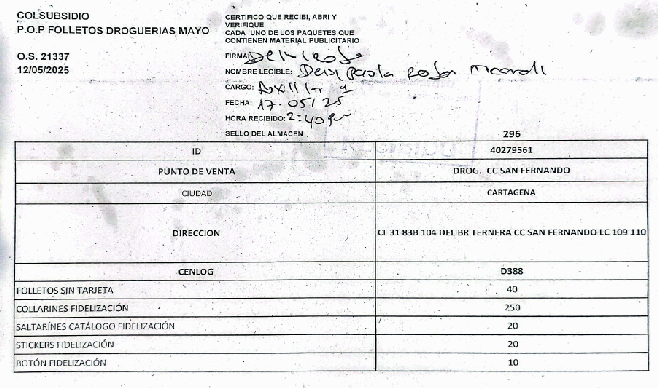 COLSUBSIDIO
P.O.P FOLLETOS DROGUERIAS MAYO
O.S. 21337
12/05/2025
CERTIFICO QUE RECIBI, ABRI Y
VERIFIQUE
CADA UNO DE LOS PAQUETES QUE
CONTIENEN MATERIAL PUBLICITARIO
FIRMA:
NOMBRE LEGIBLE: Deisy Paola Rojas
CARGO:
FECHA: 17-05/25
HORA RECIBIDO: 2:40 Pm
SELLO DEL ALMACEN 296
ID 40279561
PUNTO DE VENTA DROG. CC SAN FERNANDO
CIUDAD CARTAGENA
DIRECCION CL 31 83B 104 DEL BR TERNERA CC SAN FERNANDO LC 109 110
CENLOG D388
FOLLETOS SIN TARJETA 40
COLLARINES FIDELIZACIÓN 250
SALTARÍNES CATÁLOGO FIDELIZACIÓN 20
STICKERS FIDELIZACIÓN 20
BOTÓN FIDELIZACIÓN 10